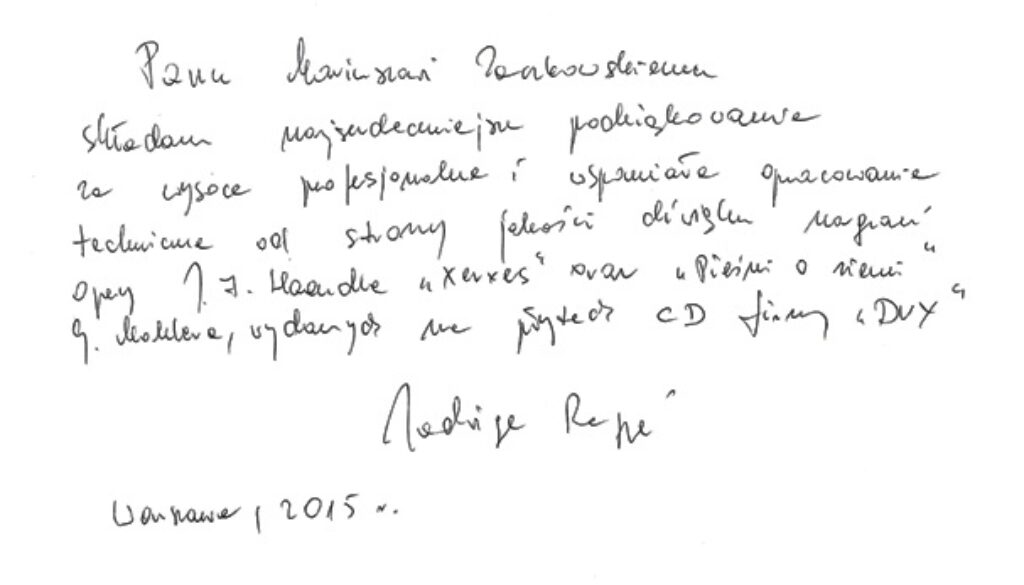 Panu Mariuszowi Zaczkowskiemu
składam najserdeczniejsze podziękowanie
za wysoce profesjonalne i wspaniałe opracowanie
techniczne od strony jakości dźwięku nagrań
opery J. F. Haendla „Xerxes“ oraz „Pieśni o ziemi“
G. Mahlera, wydanych na płytach CD firmy „DUX“
Jadwiga Rappé
Warszawa, 2015 r.